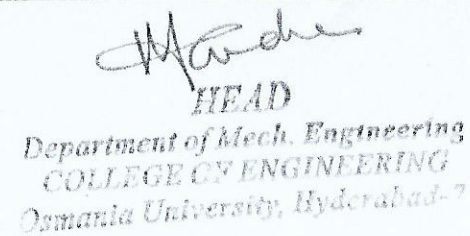 HEAD
Department of Mech. Engineering
COLLEGE OF ENGINEERING
Osmania University, Hyderabad-7